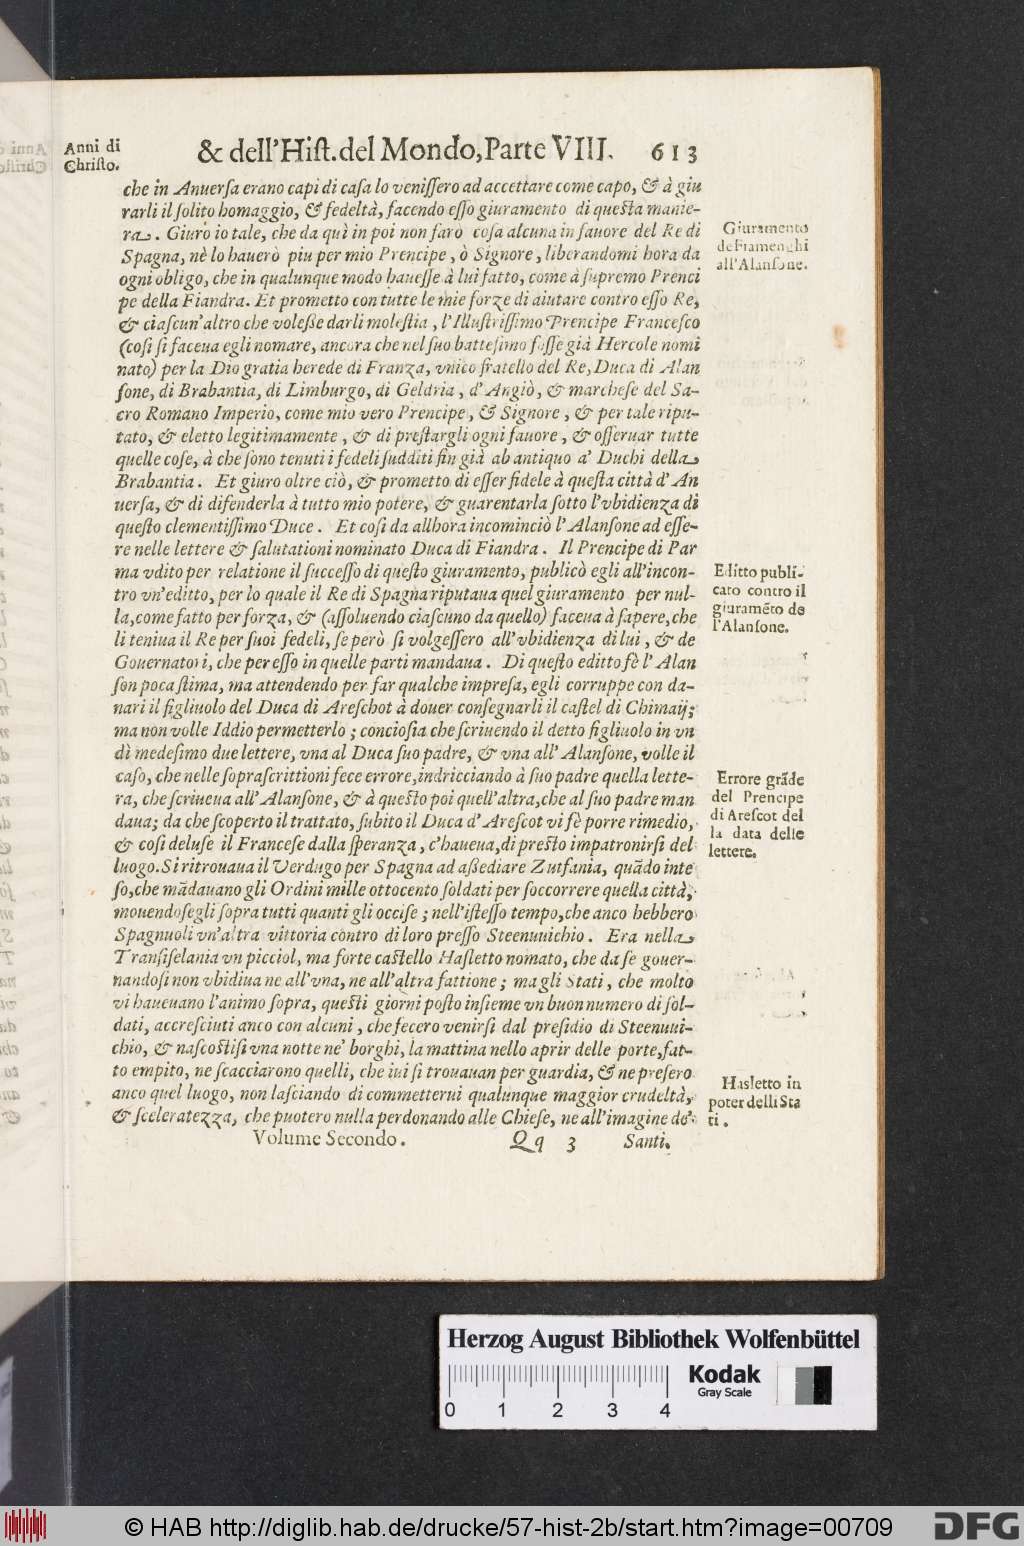 Anni di
Christo.
& dell'Hist. del Mondo, Parte VIII. 613
che in Anuersa erano capi di casa lo venissero ad accettare come capo, & à giu
rarli il solito homaggio, & fedeltà, facendo esso giuramento di questa manie-
ra. Giuro io tale, che da quì in poi non farò cosa alcuna in fauore del Re di
Spagna, nè lo hauerò piu per mio Prencipe, ò Signore, liberandomi hora da
ogni obligo, che in qualunque modo hauesse à lui fatto, come à supremo Prenci
pe della Fiandra. Et prometto con tutte le mie forze di aiutare contro esso Re,
& ciascun'altro che volesse darli molestia, l'Illustrissimo Prencipe Francesco
(cosi si faceua egli nomare, ancora che nel suo battesimo fosse già Hercole nomi
nato) per la Dio gratia herede di Franza, vnico fratello del Re, Duca di Alan
sone, di Brabantia, di Limburgo, di Geldria, d'Angiò, & marchese del Sa-
cro Romano Imperio, come mio vero Prencipe, & Signore, & per tale ripu-
tato, & eletto legitimamente, & di prestargli ogni fauore, & osseruar tutte
quelle cose, à che sono tenuti i fedeli sudditi fin già ab antiquo a' Duchi della
Brabantia. Et giuro oltre ciò, & prometto di esser fidele à questa città d'An
uersa, & di difenderla à tutto mio potere, & guarentarla sotto l'vbidienza di
questo clementissimo Duce. Et cosi da allhora incominciò l'Alansone ad esse-
re nelle lettere & salutationi nominato Duca di Fiandra. Il Prencipe di Par
ma vdito per relatione il successo di questo giuramento, publicò egli all'incon-
tro vn'editto, per lo quale il Re di Spagna riputaua quel giuramento per nul-
la, come fatto per forza, & (assoluendo ciascuno da quello) faceua à sapere, che
li teniua il Re per suoi fedeli, se però si volgessero all'vbidienza di lui, & de
Gouernatori, che per esso in quelle parti mandaua. Di questo editto fè l'Alan
son poca stima, ma attendendo per far qualche impresa, egli corruppe con da-
nari il figliuolo del Duca di Areschot à douer consegnarli il castel di Chimaij;
ma non volle Iddio permetterlo; conciosia che scriuendo il detto figliuolo in vn
dì medesimo due lettere, vna al Duca suo padre, & vna all'Alansone, volle il
caso, che nelle soprascrittioni fece errore, indricciando à suo padre quella lette-
ra, che scriueua all'Alansone, & à questo poi quell'altra, che al suo padre man
daua; da che scoperto il trattato, subito il Duca d'Arescot vi fè porre rimedio,
& cosi deluse il Francese dalla speranza, c'haueua, di presto impatronirsi del
luogo. Si ritrouaua il Verdugo per Spagna ad assediare Zutfania, quãdo inte
so, che mãdauano gli Ordini mille ottocento soldati per soccorrere quella città,
mouendosegli sopra tutti quanti gli occise; nell'istesso tempo, che anco hebbero
Spagnuoli vn'altra vittoria contro di loro presso Steenuuichio. Era nella
Transiselania vn picciol, ma forte castello Hasletto nomato, che da se gouer-
nandosi non vbidiua ne all'vna, ne all'altra fattione; ma gli Stati, che molto
vi haueuano l'animo sopra, questi giorni posto insieme vn buon numero di sol-
dati, accresciuti anco con alcuni, che fecero venirsi dal presidio di Steenuui-
chio, & nascostisi vna notte ne' borghi, la mattina nello aprir delle porte, fat-
to empito, ne scacciarono quelli, che iui si trouauan per guardia, & ne presero
anco quel luogo, non lasciando di commetterui qualunque maggior crudeltà,
& sceleratezza, che puotero nulla perdonando alle Chiese, ne all'imagine de'
Volume Secondo. Qq 3 Santi.
Giuramento
de Fiamenghi
all'Alansone.
Editto publi-
cato contro il
giuramẽto de
l'Alansone.
Errore grãde
del Prencipe
di Arescot del
la data delle
lettere.
Hasletto in
poter delli Sta
ti.
Herzog August Bibliothek Wolfenbüttel
0 1 2 3 4
Kodak
Gray Scale
© HAB http://diglib.hab.de/drucke/57-hist-2b/start.htm?image=00709
DFG